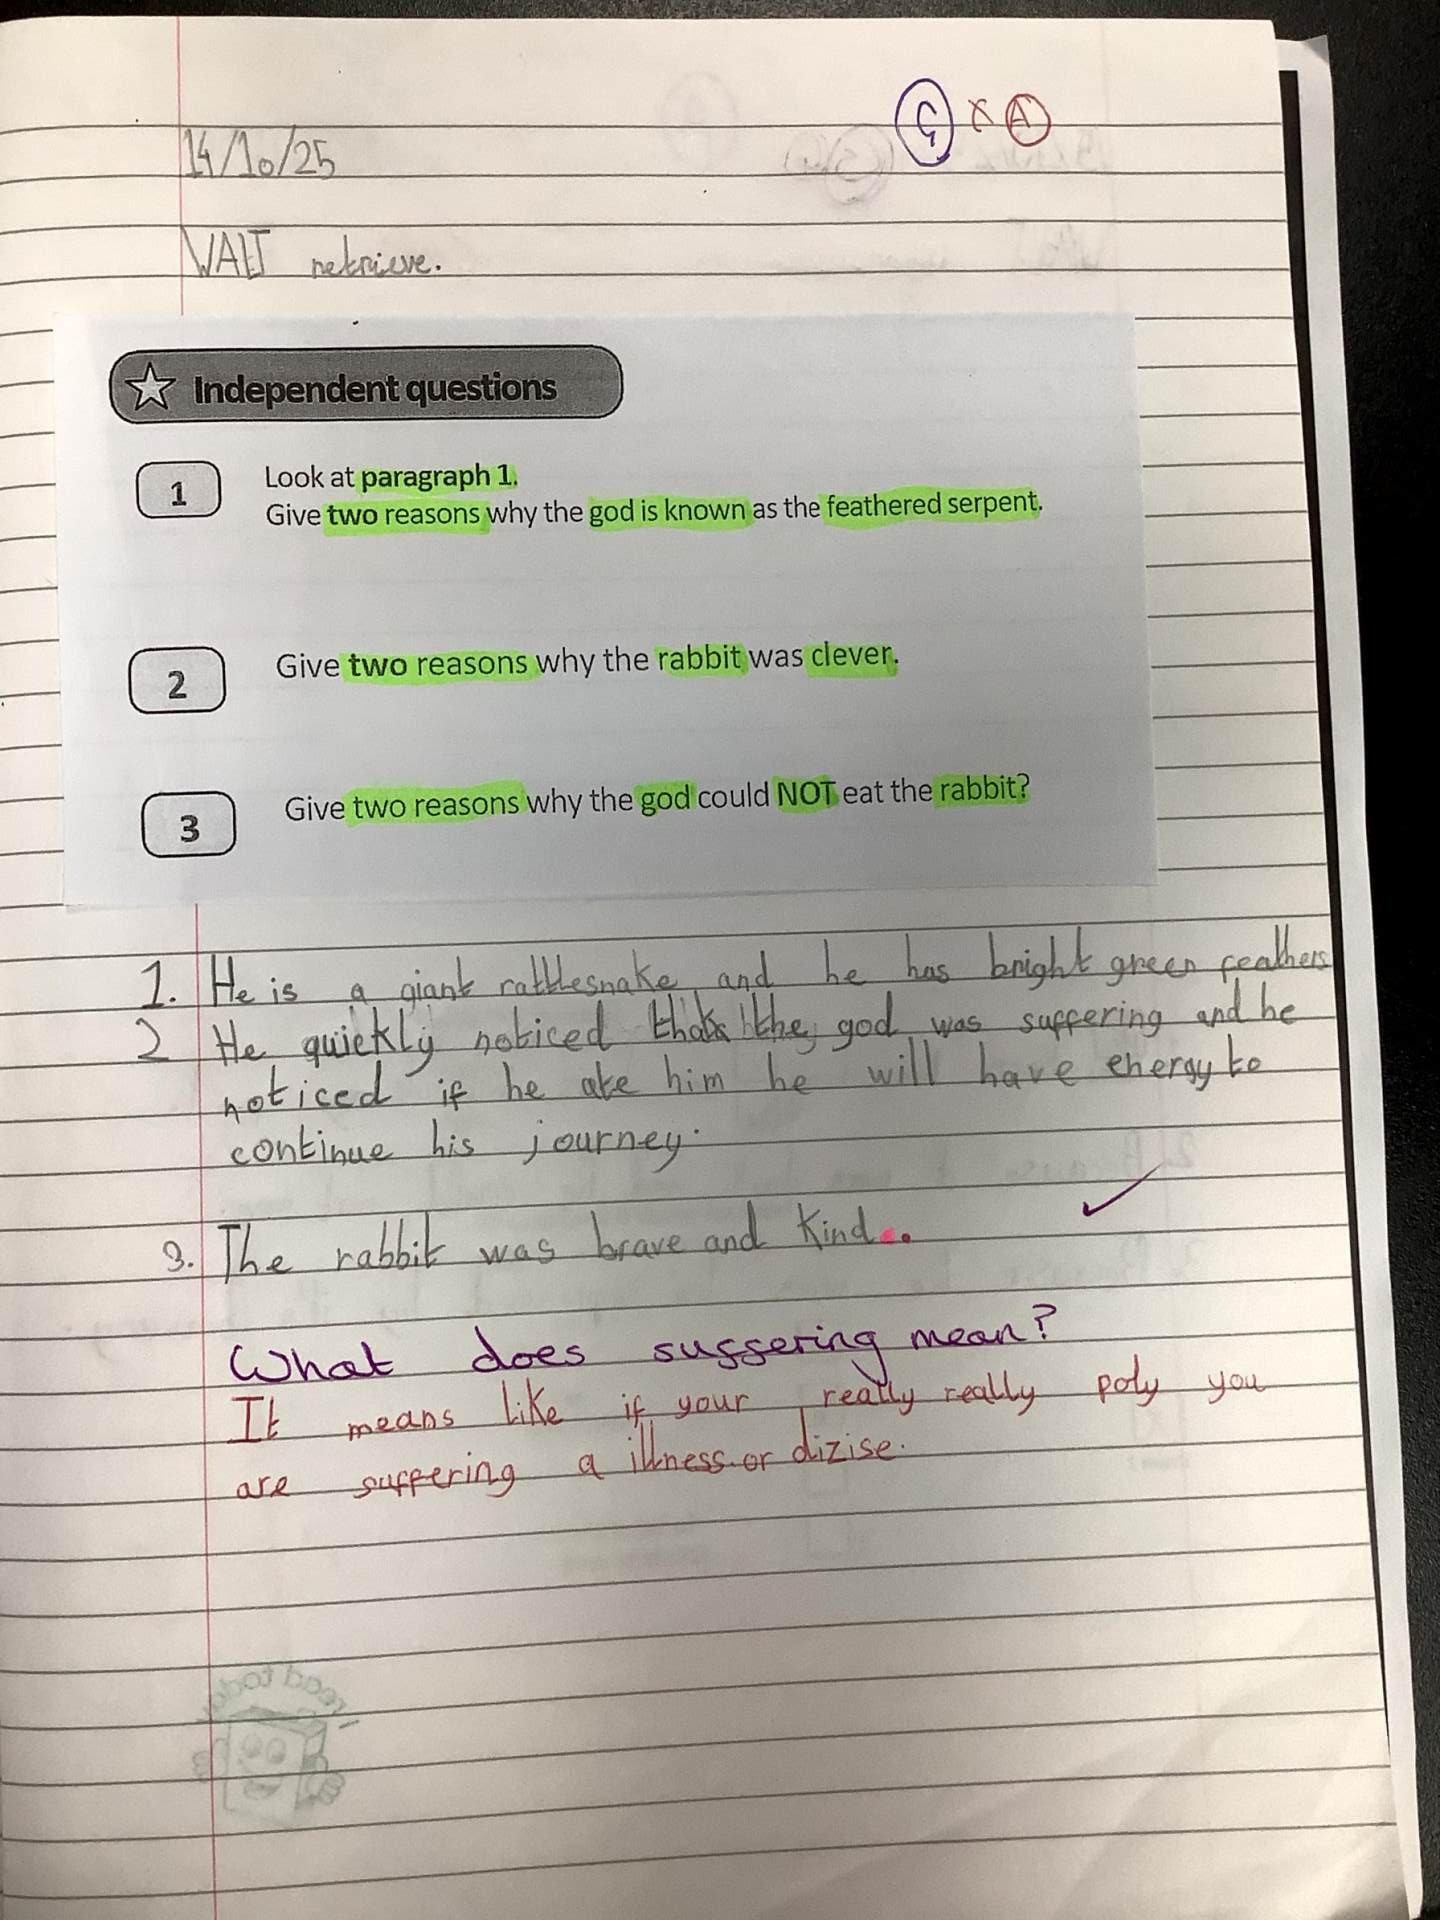 G x A
14/10/25
WALT retrieve.
Independent questions
1
Look at paragraph 1.
Give two reasons why the god is known as the feathered serpent.
2
Give two reasons why the rabbit was clever.
3
Give two reasons why the god could NOT eat the rabbit?
1. He is a giant rattlesnake and he has bright green feathers
2 He quickly noticed the god was suffering and he
noticed if he ate him he will have energy to
continue his journey.
3. The rabbit was brave and kind.
What does suffering mean?
It means like if your really really poly you
are suffering a illness or dizise.